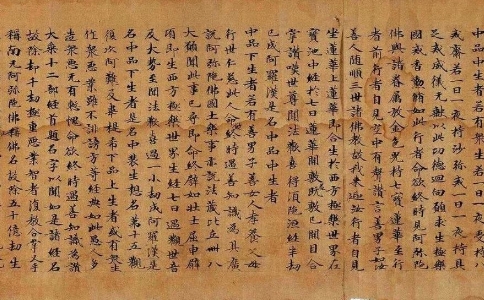 中品中生者若有衆生若一日一夜受持八
戒齋若一日一夜持沙弥戒若一日一夜持具
足戒威儀无缺以此功德迴向願求生極樂
國戒香勳脩如此行者命欲終時見阿弥陁
佛與諸眷属放金色光持七寶蓮華至行
者前行者自見空中有聲讃言善男子如汝
善人隨順三世諸佛教故我来迎汝行者自見
坐蓮華上蓮華即合生於西方極樂世界在
寶池中經於七日蓮華開敷既敷已開目合
掌讃嘆世尊聞法歡喜得湏陁洹經半劫
已成阿羅漢是名中品中生者
中品下生者若有善男子善女人孝養父母
行世仁慈此人命終時遇善知識為其廣
說阿弥陁佛國土樂事亦說法蔵比丘卌八
大願聞此事已尋即命終譬如壯士屈申臂
項即生西方極樂世界生經七日遇觀世音
及大勢至聞法歡喜過一小劫成阿羅漢是
名中品下生者是名中輩生想名第十五觀
復次阿難及韋提希下品上生者或有衆生
作衆惡業雖不誹謗方等經典如此愚人多
造衆惡无有慙愧命欲終時遇善知識為讃
大乗十二部經首題名字以聞如是諸經名
故除却千劫極重惡業智者復教合掌叉手
稱南无阿弥陁佛稱佛名故除五十億劫生